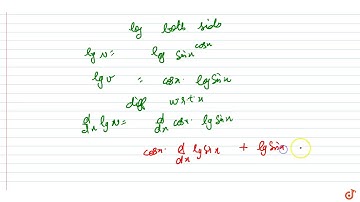 log both side
log v = log sinx^cosx
log v = cosx. log sinx
diff w.r.t x
d/dx log v = d/dx cosx. log sinx
cosx. d/dx log sinx + log sinx .